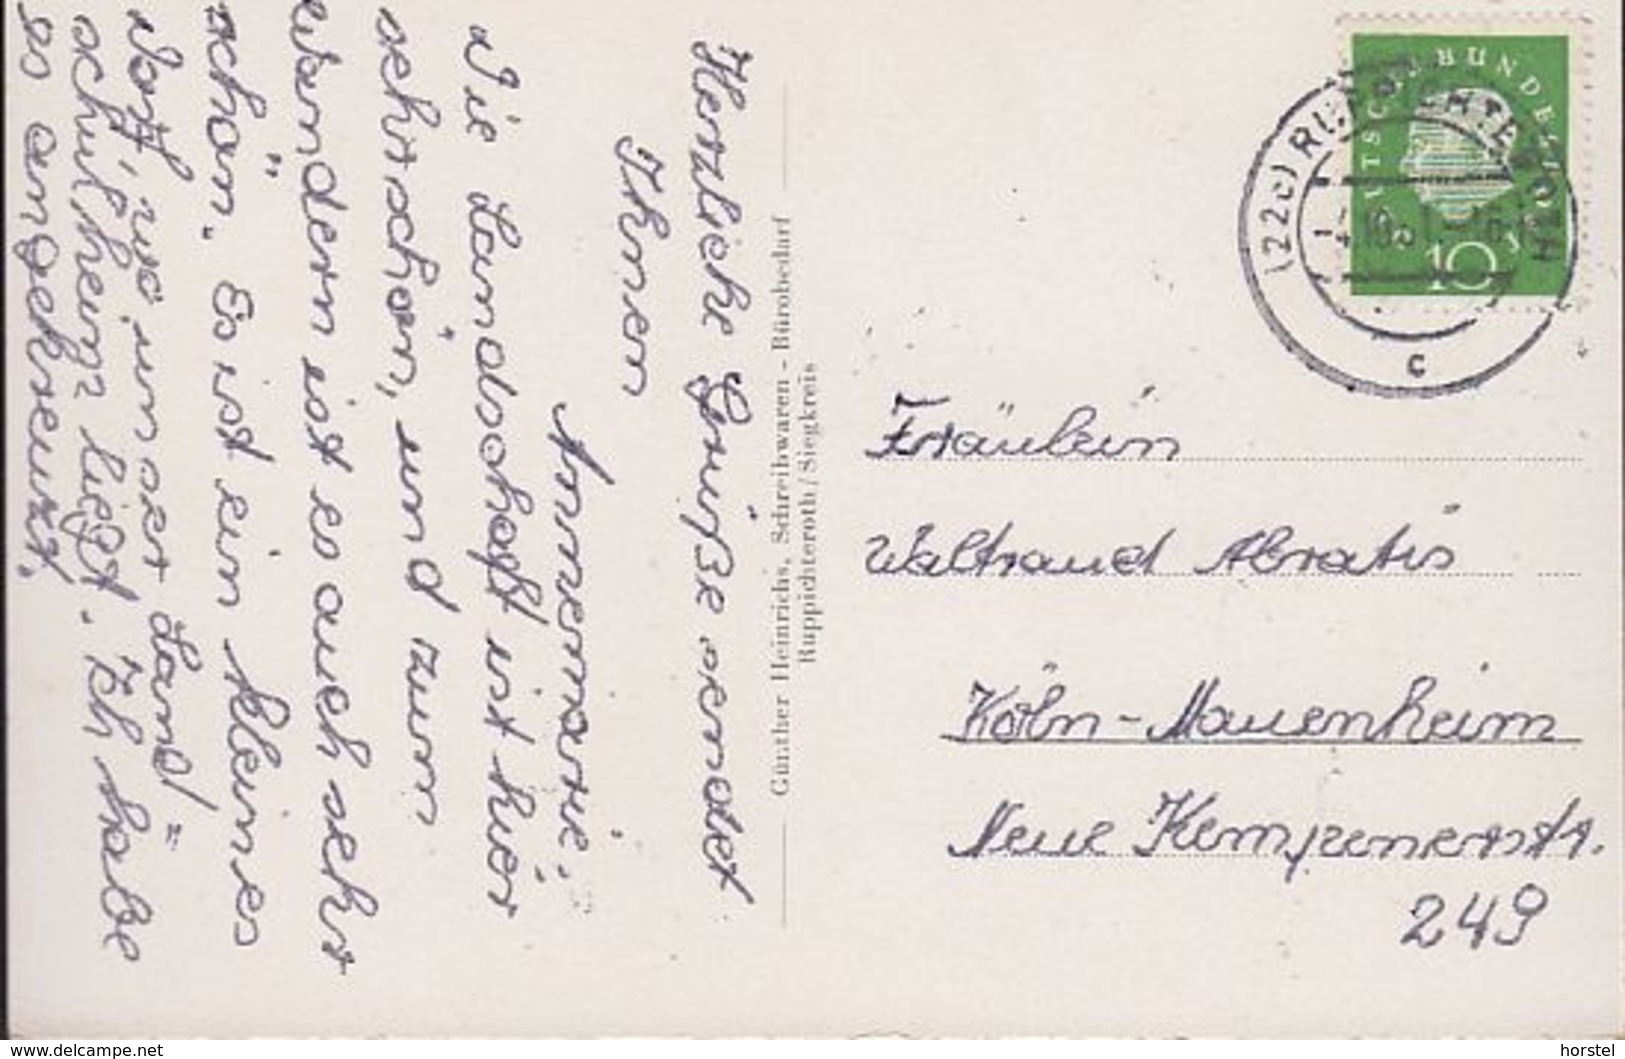 Herzliche Grüße sendet
Ihnen
Annemarie.
Die Landschaft ist hier
sehr schön, und zum
Wandern ist es auch sehr
schön. Es ist ein kleines
Dorf, wo unser Land=
schulheim liegt. Ich habe
es angekreuzt.
Günther Heinrichs, Schreibwaren - Bürobedarf
Ruppichteroth/Siegkreis
DEUTSCHE BUNDESPOST
10
(22c) RUPPICHTEROTH
c
Fräulein
Waltraud Abratis
Köln-Mauenheim
Neue Kempenerstr.
249
www.delcampe.net
horstel